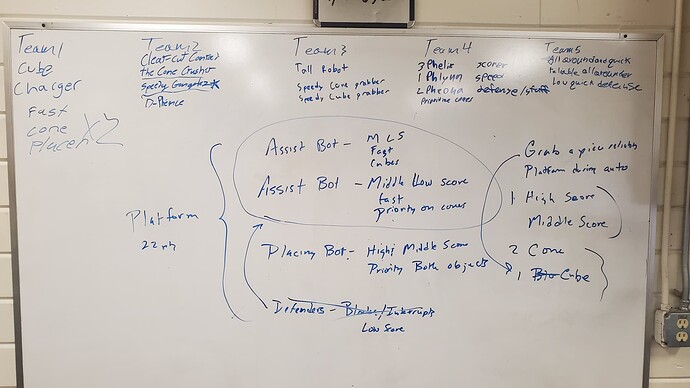 Team 1
Cube
Charger
Fast
cone
Placer X2
Team 2
Clear-Cut Control
the Cone Crusher
Speedy
D-Phence
Team 3
Tall Robot
Speedy Cone grabber
Speedy Cube grabber
Team 4
3 Phelix scorer
1 Phlynn speed
2 Pheona defense/stuff
Prioritize cones
Team 5
all around and quick
allarounder
Low quick defense
Platform
22 pt
Assist Bot - M LS
Fast
Cubes
Assist Bot - Middle Low score
fast
Priority on cones
Placing Bot - High & Middle Score
Priority Both objects
Defenders - Blocks/Interrupts
Low Score
Grab a piece reliably
Platform during auto
1 High Score
Middle Score
2 Cone
1 Cube